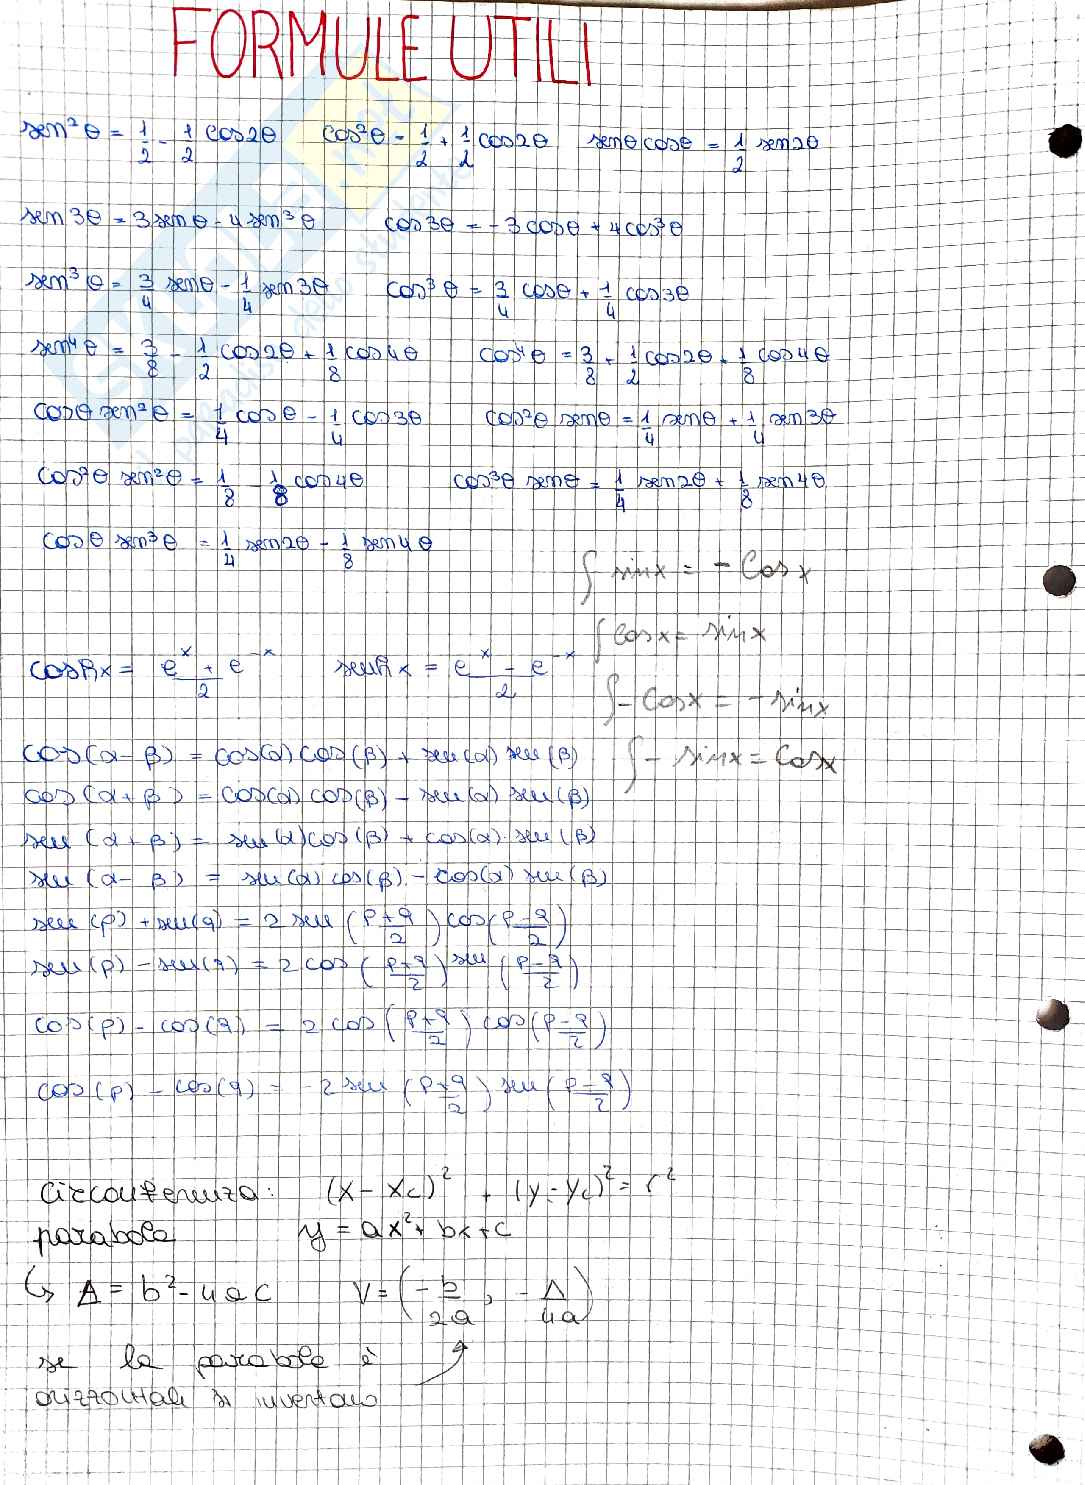 FORMULE UTILI
sen²θ = 1/2 - 1/2 cos2θ cos²θ = 1/2 + 1/2 cos2θ senθcosθ = 1/2 sen2θ
sen3θ = 3senθ - 4sen³θ cos3θ = -3cosθ + 4cos³θ
sen³θ = 3/4 senθ - 1/4 sen3θ cos³θ = 3/4 cosθ + 1/4 cos3θ
sen⁴θ = 3/8 - 1/2 cos2θ + 1/8 cos4θ cos⁴θ = 3/8 + 1/2 cos2θ + 1/8 cos4θ
cosθ sen²θ = 1/4 cosθ - 1/4 cos3θ cos²θ senθ = 1/4 senθ + 1/4 sen3θ
cos²θ sen²θ = 1/8 - 1/8 cos4θ cos³θ senθ = 1/4 sen2θ + 1/8 sen4θ
cosθ sen³θ = 1/4 sen2θ - 1/8 sen4θ
∫ sinx = - Cosx
∫ Cosx = sinx
coshx = (e^x + e^-x)/2 senhx = (e^x - e^-x)/2
∫ - Cosx = - sinx
∫ - sinx = Cosx
cos(α-β) = cos(α)cos(β) + sen(α) sen(β)
cos(α+β) = cos(α) cos(β) - sen(α) sen(β)
sen(α+β) = sen(α)cos(β) + cos(α)·sen(β)
sen(α-β) = sen(α) cos(β) - cos(α) sen(β)
sen(p) + sen(q) = 2 sen((p+q)/2) cos((p-q)/2)
sen(p) - sen(q) = 2 cos((p+q)/2) sen((p-q)/2)
cos(p) - cos(q) = 2 cos((p+q)/2) cos((p-q)/2)
cos(p) - cos(q) = -2 sen((p+q)/2) sen((p-q)/2)
circonferenza: (x - xc)² + (y - yc)² = r²
parabola y = ax² + bx + c
↳ Δ = b² - 4ac V = (-b/2a, -Δ/4a)
se la parabola è
orizzontale si invertono